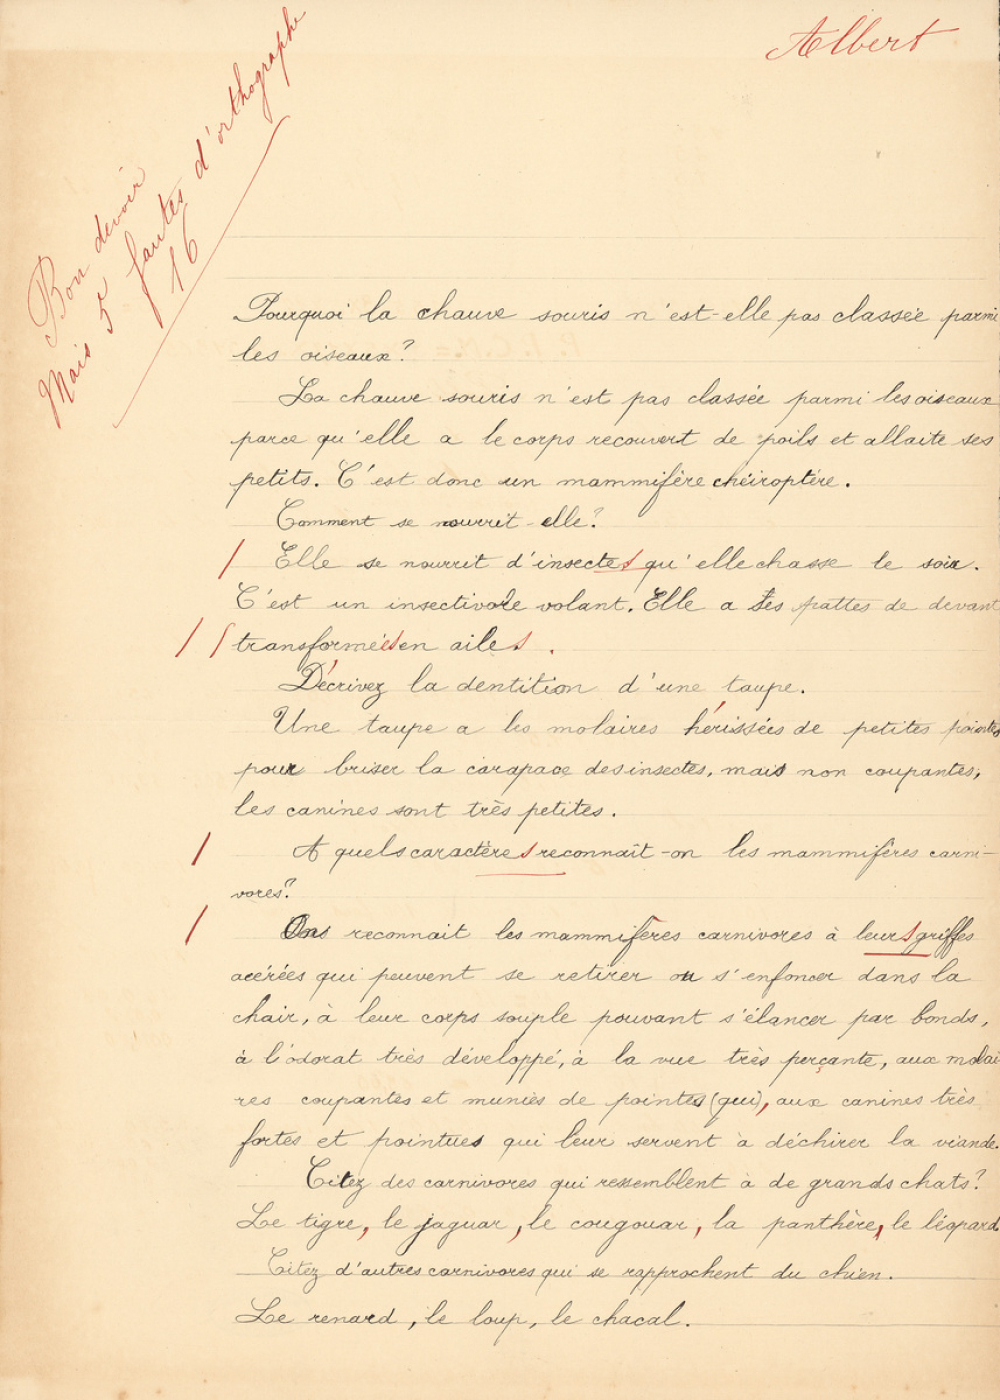 Albert
Bon devoir
Mais 5 fautes d'orthographe
16
Pourquoi la chauve souris n'est-elle pas classée parmi
les oiseaux?
La chauve souris n'est pas classée parmi les oiseaux
parce qu'elle a le corps recouvert de poils et allaite ses
petits. C'est donc un mammifère chéiroptère.
Comment se nourrit-elle?
Elle se nourrit d'insectes qu'elle chasse le soir.
C'est un insectivore volant. Elle a ses pattes de devant
transformées en ailes.
Décrivez la dentition d'une taupe.
Une taupe a les molaires hérissées de petites pointes
pour briser la carapace des insectes, mais non coupantes,
les canines sont très petites.
A quels caractères reconnaît-on les mammifères carni-
vores?
On reconnait les mammifères carnivores à leurs griffes
acérées qui peuvent se retirer ou s'enfoncer dans la
chair, à leur corps souple pouvant s'élancer par bonds,
à l'odorat très développé, à la vue très perçante, aux molai
res coupantes et munies de pointes (qui), aux canines très
fortes et pointues qui leur servent à déchirer la viande.
Citez des carnivores qui ressemblent à de grands chats?
Le tigre, le jaguar, le cougouar, la panthère, le léopard
Citez d'autres carnivores qui se rapprochent du chien.
Le renard, le loup, le chacal.